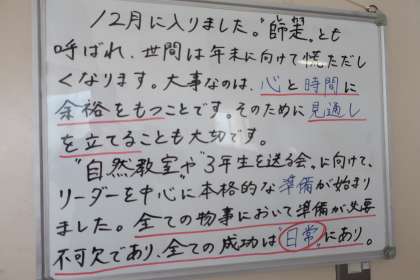 12月に入りました。"師走"とも
呼ばれ、世間は年末に向けて慌ただし
くなります。大事なのは、心と時間に
余裕をもつことです。そのために見通し
を立てることも大切です。
"自然教室"や"3年生を送る会"に向けて、
リーダーを中心に本格的な準備が始まり
ました。全ての物事において準備が必要
不可欠であり、全ての成功は"日常"にあり。